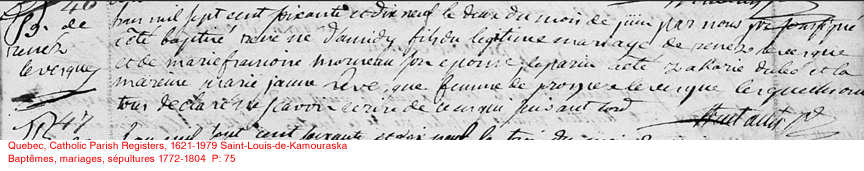 B. de
renez
levesque
Lan mil sept cent soixante et dix neuf le deux du mois de juin par nous prêtre soussigné
a été baptisé rené né d'amidy fils du legitime mariage de renez levesque
et de marie françoise moreau son epouse le parin a été zakarie dubé et la
mareine marie jeanne levesque femme de prosper levesque lesquels nous
tous declaré ne sçavoir ecrire de ce enquis suivant lord
47
Lan mil sept cent soixante et dix neuf le
Quebec, Catholic Parish Registers, 1621-1979 Saint-Louis-de-Kamouraska
Baptêmes, mariages, sépultures 1772-1804 P: 75